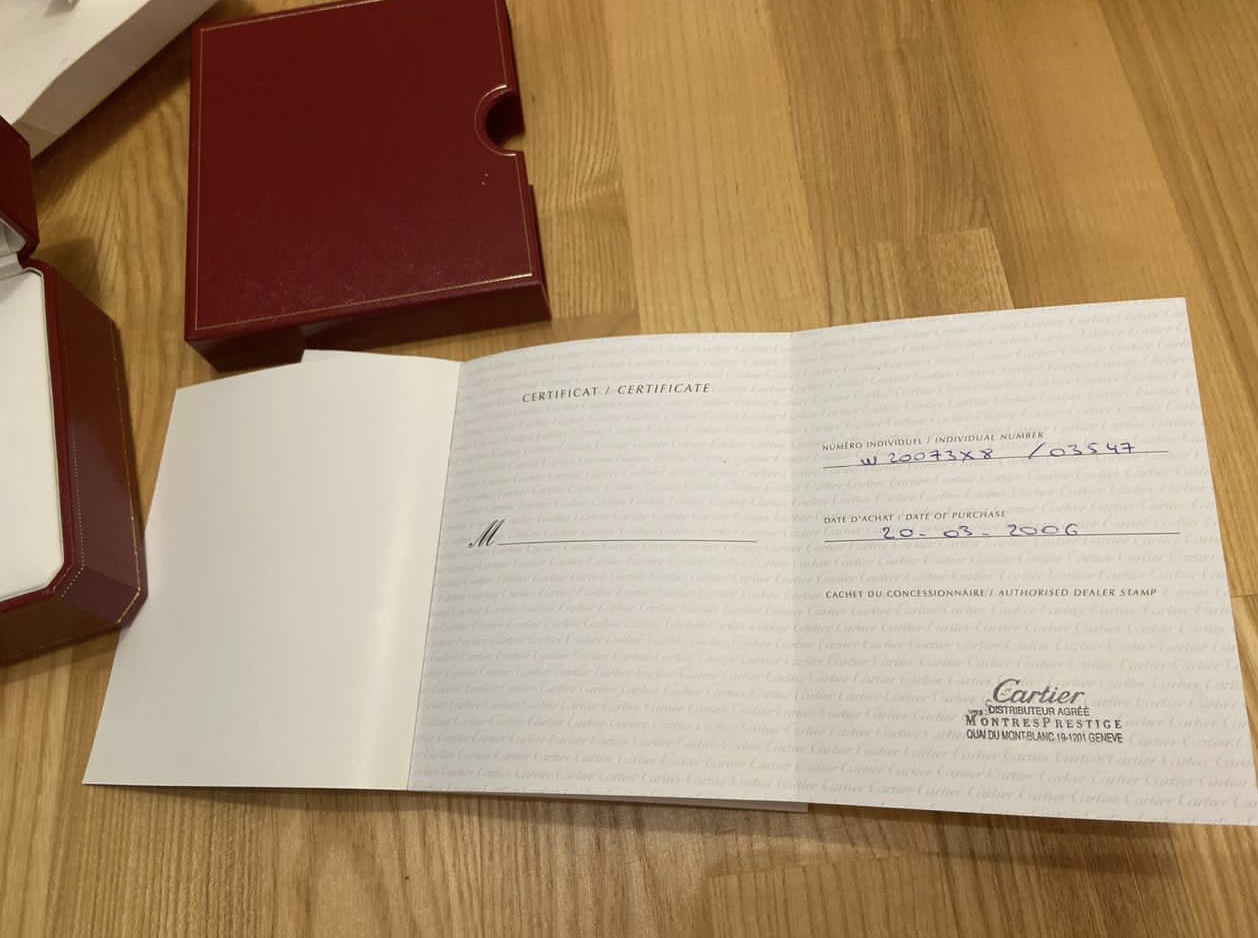 CERTIFICAT / CERTIFICATE
M
NUMÉRO INDIVIDUEL / INDIVIDUAL NUMBER
W20073X8 /03547
DATE D'ACHAT / DATE OF PURCHASE
20-03-2006
CACHET DU CONCESSIONNAIRE / AUTHORISED DEALER STAMP
Cartier
DISTRIBUTEUR AGRÉÉ
MONTRES PRESTIGE
QUAI DU MONT-BLANC 19-1201 GENEVE